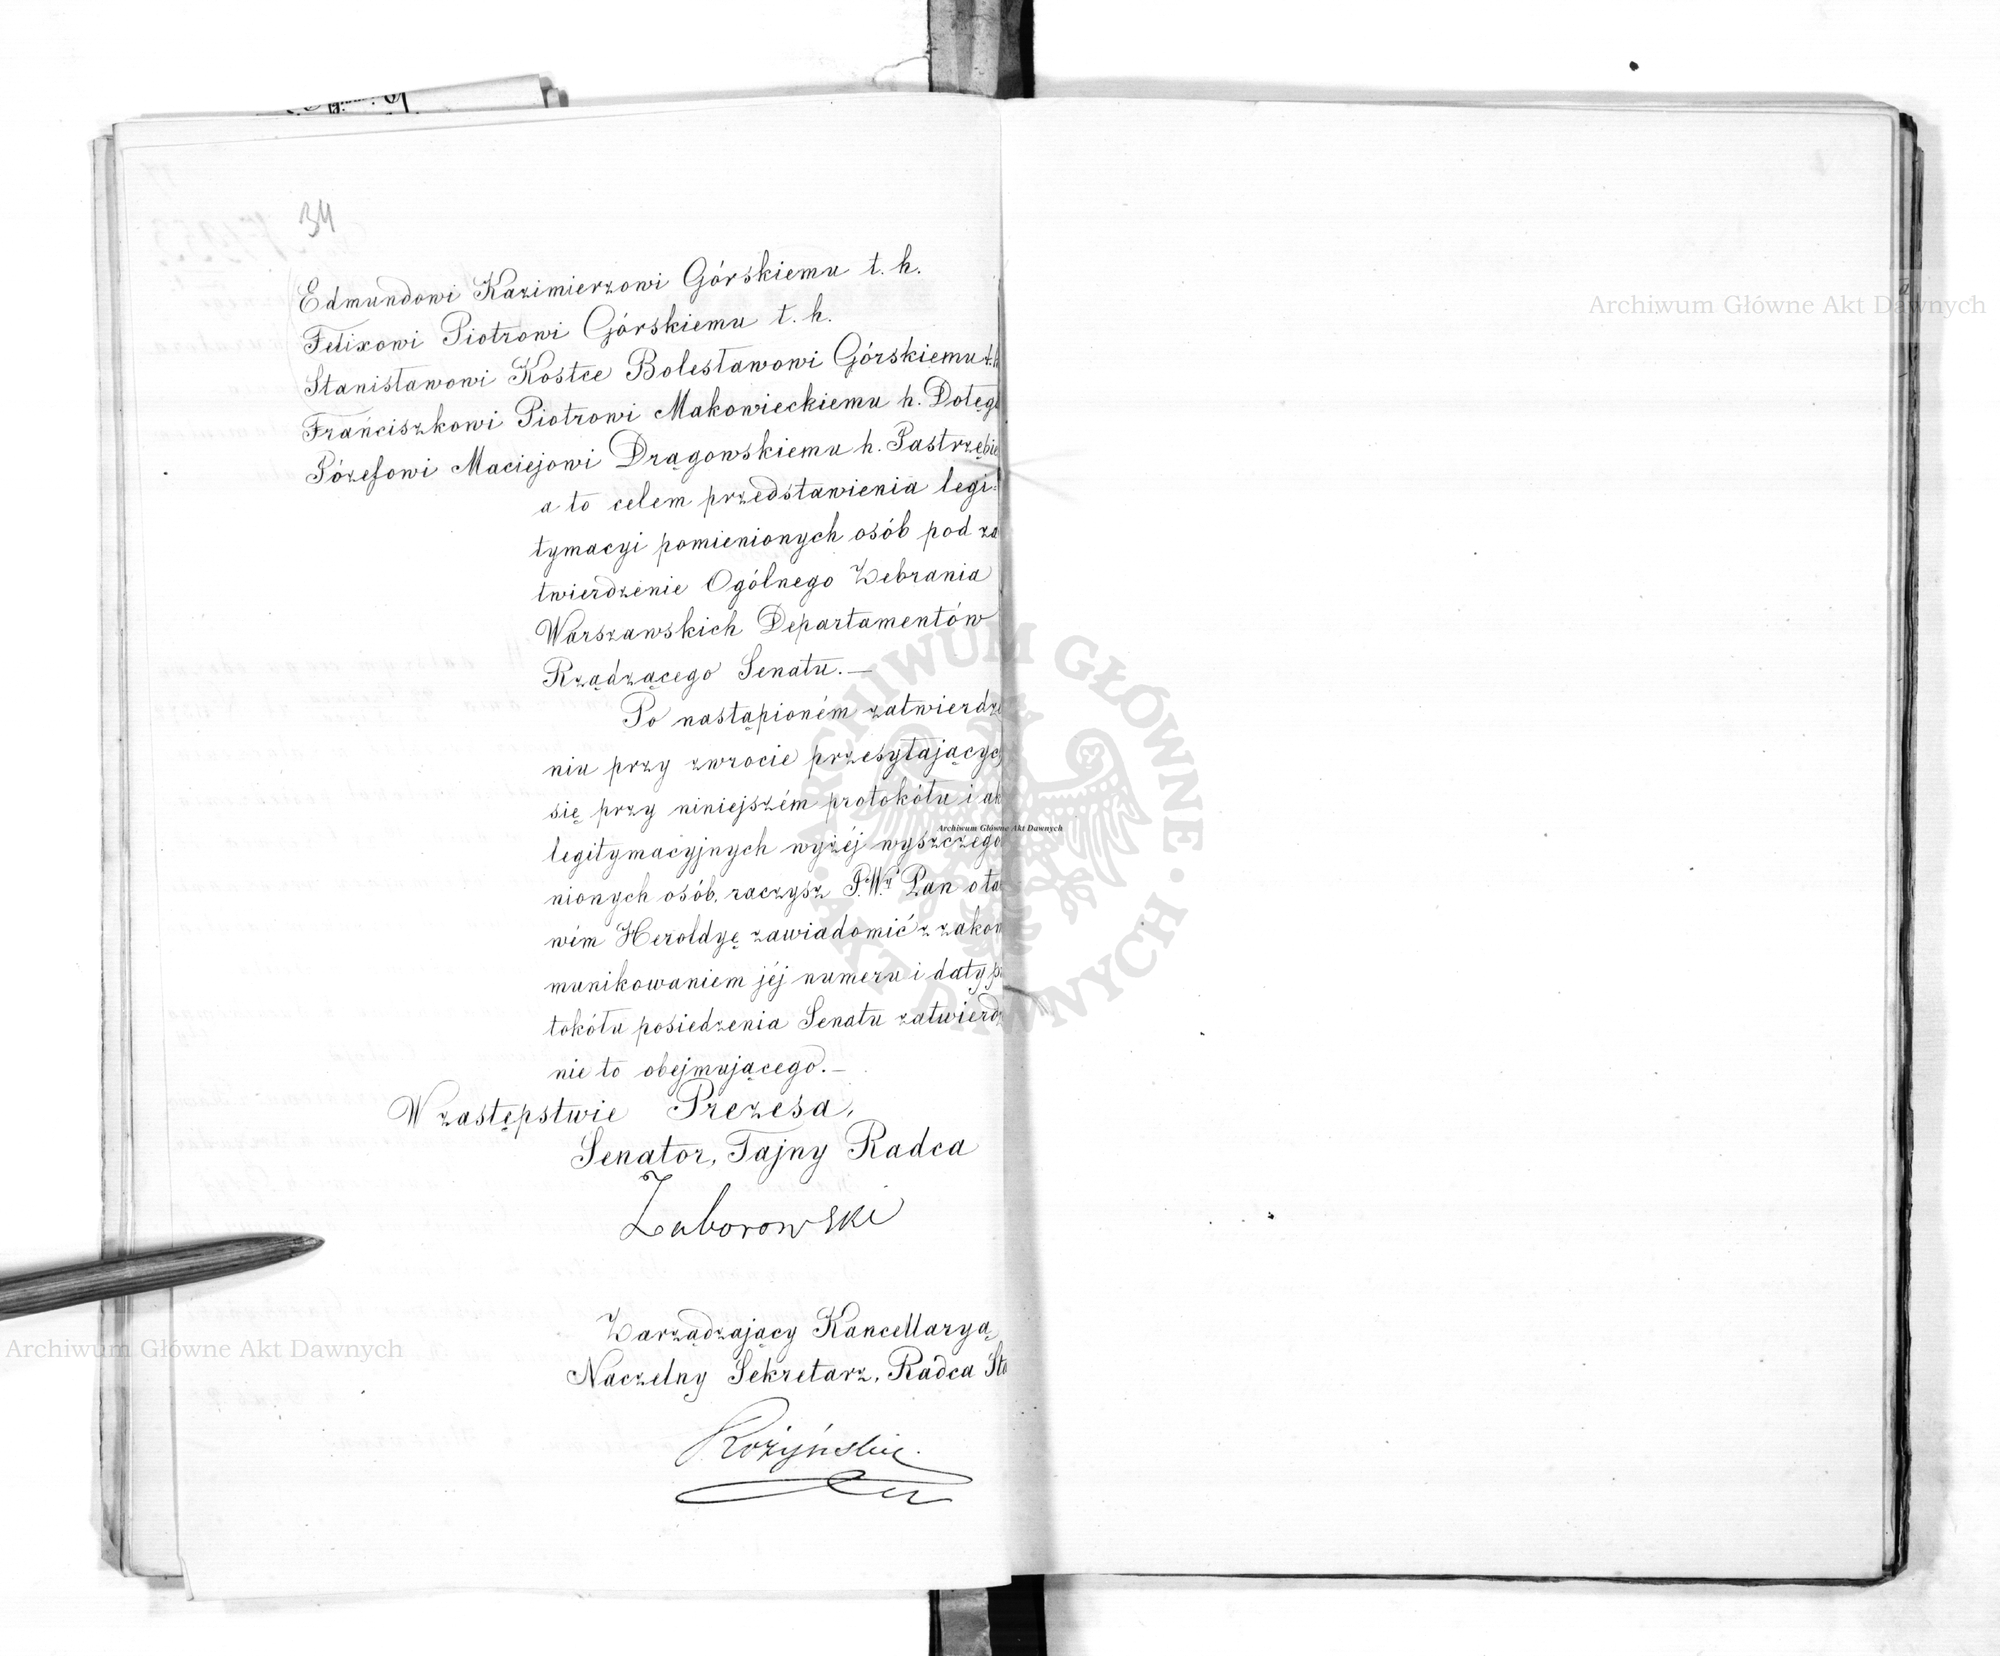 34
Edmundowi Kazimierzowi Górskiemu t. h.
Felixowi Piotrowi Górskiemu t. h.
Stanisławowi Kostce Bolesławowi Górskiemu t. h
Franciszkowi Piotrowi Makowieckiemu h. Dołęg
Józefowi Maciejowi Drągowskiemu h. Jastrzębie
a to celem przedstawienia legi-
tymacyi pomienionych osób pod za
twierdzenie Ogólnego Zebrania
Warszawskich Departamentów
Rządzącego Senatu.—
Po nastąpioném zatwierdze
niu przy zwrocie przesyłających
się przy niniejszém protokółu i ak
legitymacyjnych wyżéj wyszczegó
nionych osób, raczysz J.W.y Pan o ta
wém Heroldyę zawiadomić z zakom
munikowaniem jéj numeru i daty p
tokółu posiedzenia Senatu zatwierdz
nie to obejmującego.—
W zastępstwie Prezesa,
Senator, Tajny Radca
Zaborowski
Zarządzający Kancellaryą,
Naczelny Sekretarz, Radca Sta
Rożyński
Archiwum Główne Akt Dawnych
Archiwum Główne Akt Dawnych
Archiwum Główne Akt Dawnych
ARCHIWUM GŁÓWNE AKT DAWNYCH